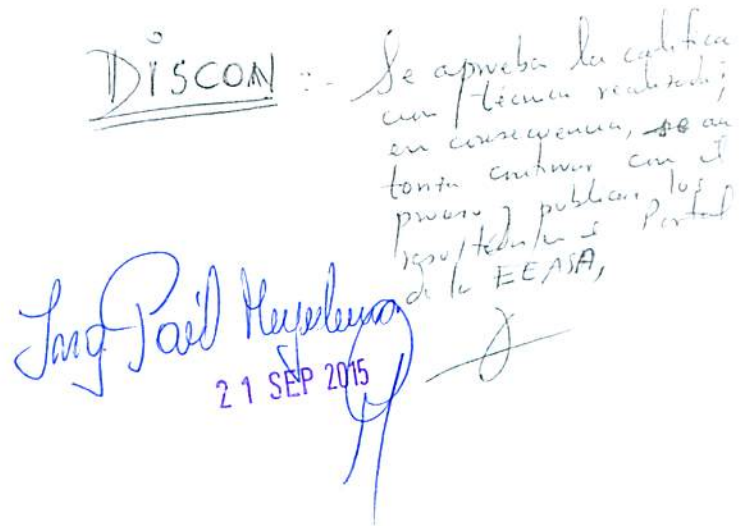 DISCON :- Se aprueba la califica
cion técnica realizada;
en consecuencia, se au
toriza continuar con el
proceso y publicar los
resultados en el Portal
de la EEASA,
Ing Paúl
21 SEP 2015